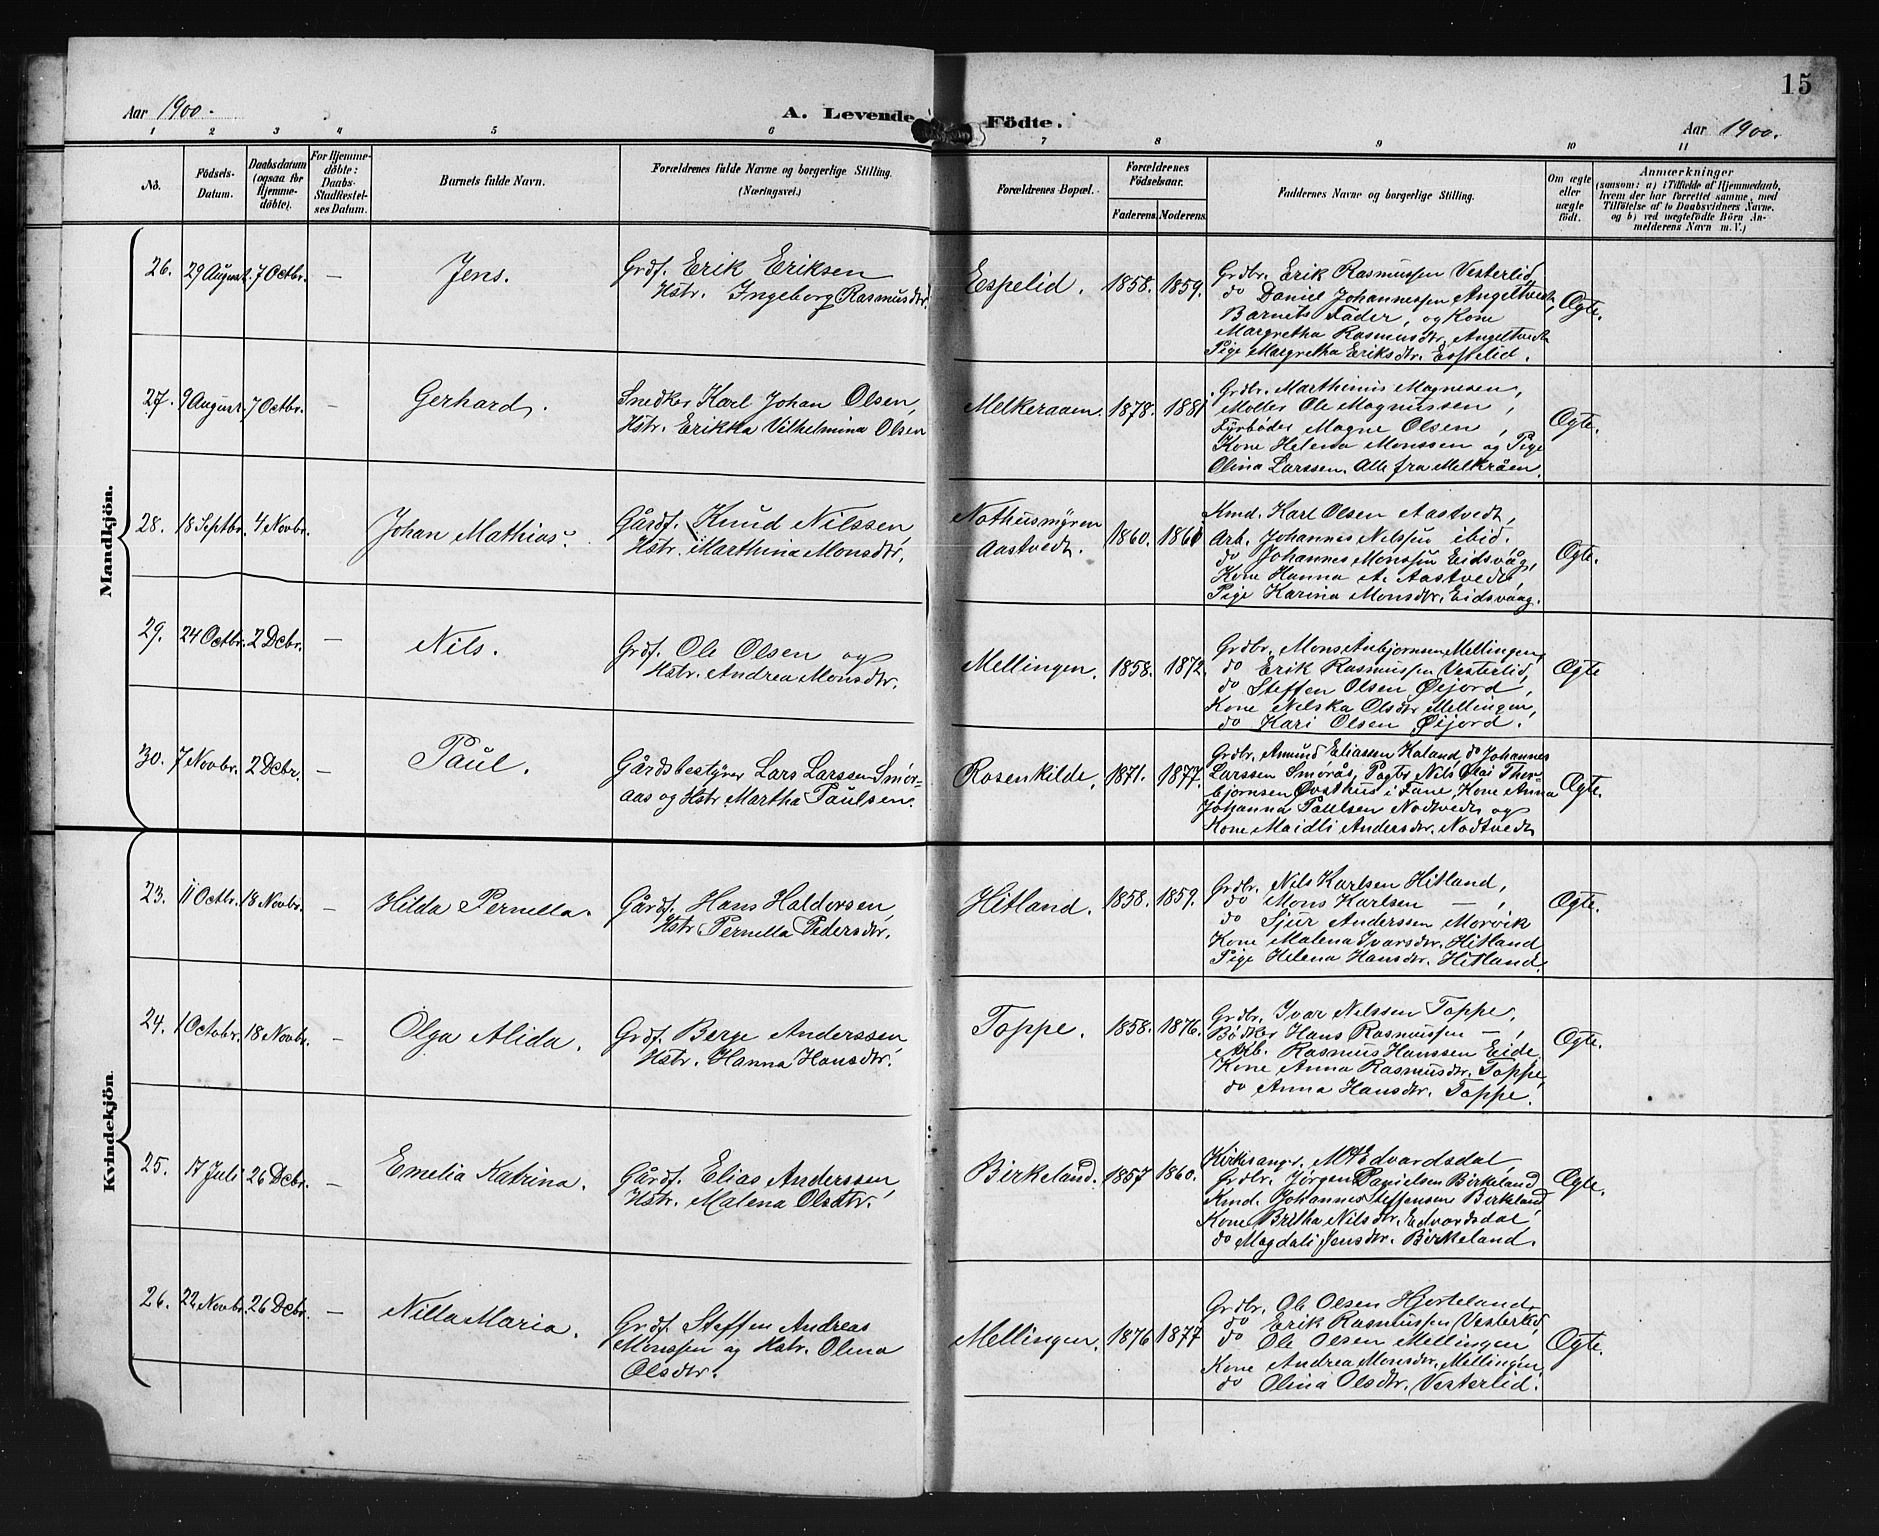 15
Aar 1900.
A. Levende Födte.
Aar 1900.
1 2 3 4 5 6 7 8 9 10 11
No.
Födsels-Datum.
Daabsdatum (ogsaa for Hjemme-döbte).
For Hjemme-döbte: Daabs-Stadfæstel-ses Datum.
Barnets fulde Navn.
Forældrenes fulde Navne og borgerlige Stilling.
(Næringsvei.)
Forældrenes Bopæl.
Forældrenes Födselsaar.
Faderens. Moderens.
Faddernes Navne og borgerlige Stilling.
Om ægte eller uægte födt.
Anmærkninger
(saasom: a) i Tilfælde af Hjemmedaab,
hvem der har forrettet samme, med
Tilföielse af to Daabsvidners Navne,
og b) ved uægtefödte Börn An-
melderens Navn m. V.)
Mandkjön.
26. 29 August. 7 Octbr. —
Jens.
Grdf. Erik Eriksen
Hstr. Ingeborg Rasmusdtr.
Espelid. 1858. 1859.
Grdbr. Erik Rasmussen Vesterlid,
do Daniel Johannessen Angeltvedt,
Barnets Fader, og Kone
Margretha Rasmusdtr. Angeltvedt
Pige Margretha Eriksdtr. Espelid.
Ægte.
27. 9 August. 7 Octbr. —
Gerhard.
Snedker Karl Johan Olsen,
Hstr. Erikka Vilhelmina Olsen
Melkeraaen. 1878. 1881
Grdbr. Marthinus Magnesen,
Møller Ole Magnussen,
Fyrbøder Magne Olsen,
Kone Helena Monssen og Pige
Olina Larssen. Alle fra Melkråen.
Ægte.
28. 18 Septbr. 4 Novbr. —
Johan Mathias.
Gårdf. Knud Nilssen,
Hstr. Marthina Monsdtr.
Nøthusmyren
Aastvedt. 1860. 1861
Kmd. Karl Olsen Aastvedt,
Arb. Johannes Nilssen ibid.
do Johannes Monssen Eidsvåg,
Kone Hanna A. Aastvedt,
Pige Karina Monsdtr. Eidsvaag.
Ægte.
29. 24 Octbr. 2 Debr. —
Nils.
Grdf. Ole Olsen og
Hstr. Andrea Monsdtr.
Mellingen. 1858. 1872.
Grdbr. Mons Anbjørnsen Mellingen,
do Erik Rasmussen Vesterlid,
do Steffen Olsen Øijord,
Kone Nilska Olsdtr Mellingen,
do Kari Olsen Øijord.
Ægte
30. 7 Novbr. 2 Debr. —
Paul.
Gårdsbestyrer Lars Larssen Smør-
aas og Hstr Martha Paulsen.
Rosenkilde. 1871. 1877.
Grdbr. Amund Eliassen Haland do Johannes
Larssen Smørås, Pagtr Nils Olai Thor-
bjørnsen Øvsthus i Fane, Kone Anna
Johanna Paulsen Nødtvedt og
Kone Maidli Andersdtr. Nødtvedt
Ægte.
Kvindekjön.
23. 11 Octbr. 18 Novbr. —
Hilda Pernella.
Gårdf. Hans Haldorsen,
Hstr Pernella Pedersdtr.
Hitland. 1858. 1859.
Grdbr. Nils Karlsen Hitland,
do Mons Karlsen — ,
do Sjur Anderssen Morvik
Kone Malena Ivarsdtr. Hitland
Pige Helena Hansdtr. Hitland.
Ægte.
24. 1 Octobr. 18 Novbr. —
Olga Alida.
Grdf. Berge Anderssen
Hstr. Hanna Hansdtr.
Toppe. 1858. 1876.
Grdbr. Ivar Nilssen Toppe,
Bødker Hans Rasmussen — ,
Arb. Rasmus Hanssen Eide,
Kone Anna Rasmusdtr. Toppe,
do Anna Hansdtr. Toppe.
Ægte.
25. 17 Juli 26 Debr. —
Emelia Katrina.
Gårdf. Elias Anderssen,
Hstr. Malena Olsdtr.
Birkeland. 1857 1860.
Kirkesanger M. Edvardsdal,
Grdbr. Jørgen Danielsen Birkeland,
Kmd. Johannes Steffensen Birkeland,
Kone Britha Nilsdtr. Edvardsdal,
do Magdali Jensdtr. Birkeland.
Ægte.
26. 22 Novbr. 26 Debr. —
Nilla Maria.
Grdf. Steffen Andreas
Monssen og Hstr. Olina
Olsdtr.
Mellingen. 1876 1877
Grdbr. Ole Olsen Hjorteland,
do Erik Rasmussen Vesterlid,
do Ole Olsen Mellingen,
Kone Andrea Monsdtr. Mellingen,
do Olina Olsdtr. Vesterlid.
Ægte.